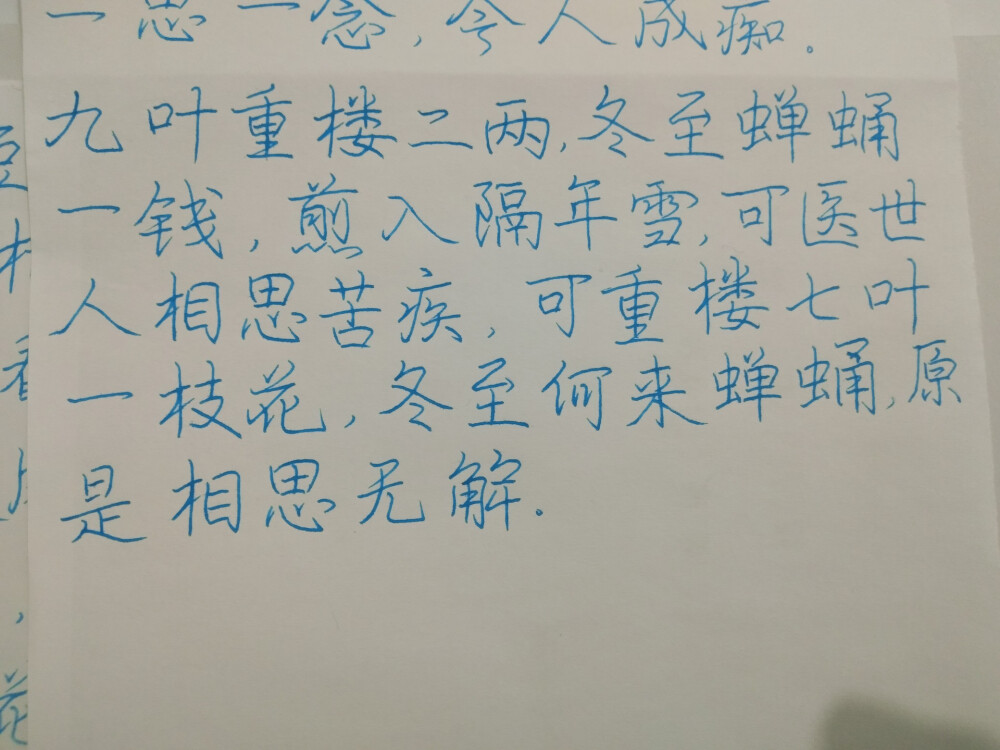 一思一念,令人成痴.
九叶重楼二两,冬至蝉蛹
一钱,煎入隔年雪,可医世
人相思苦疾,可重楼七叶
一枝花,冬至何来蝉蛹,原
是相思无解.